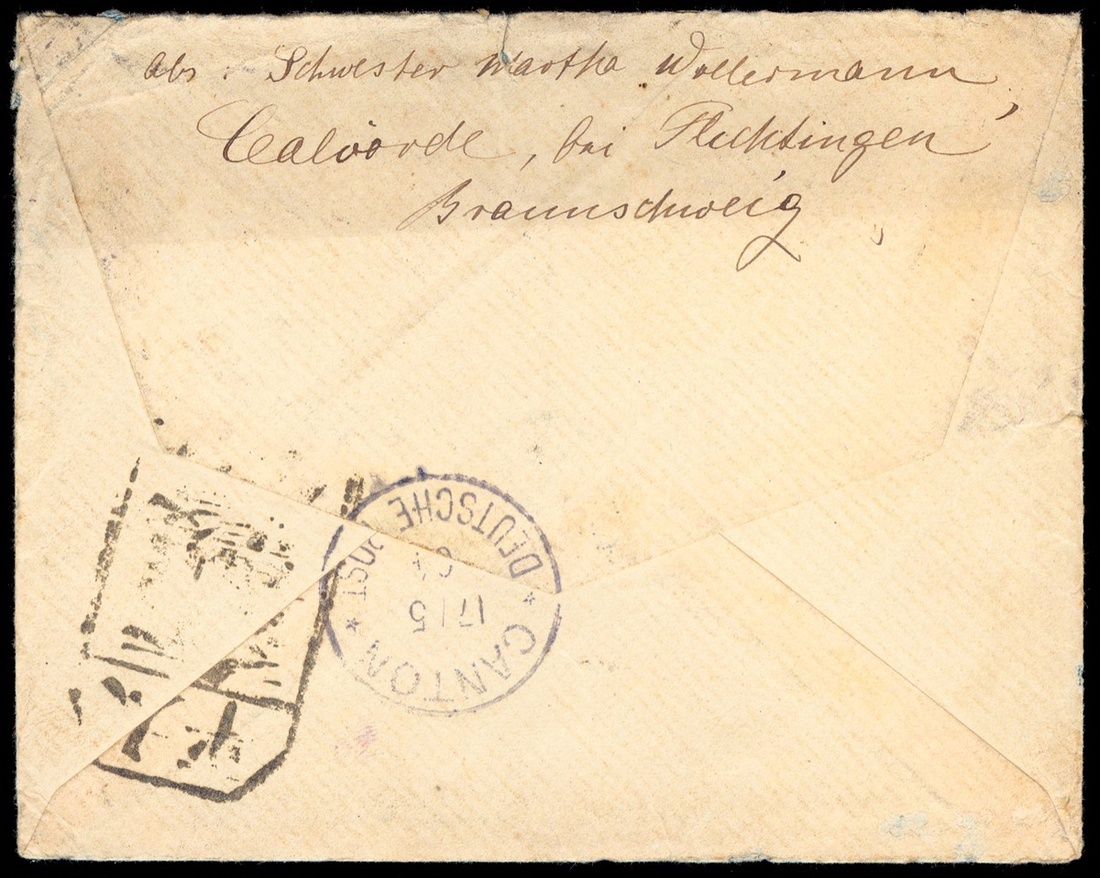 Abs. Schwester Martha Wollermann,
Calvörde, bei Flechtingen
Braunschweig
* DEUTSCHE POST *
17/5
CANTON